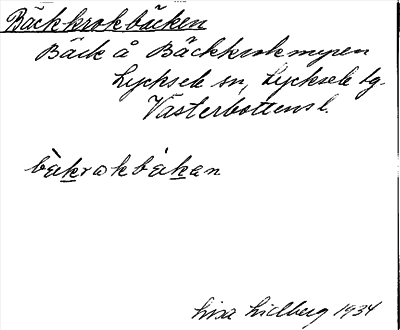 Bäckkrokbäcken
Bäck å Bäckkrokmyren
Lycksele sn, Lycksele lg.
Västerbottens l.
bèkrokbékan
Lisa Lidberg 1934